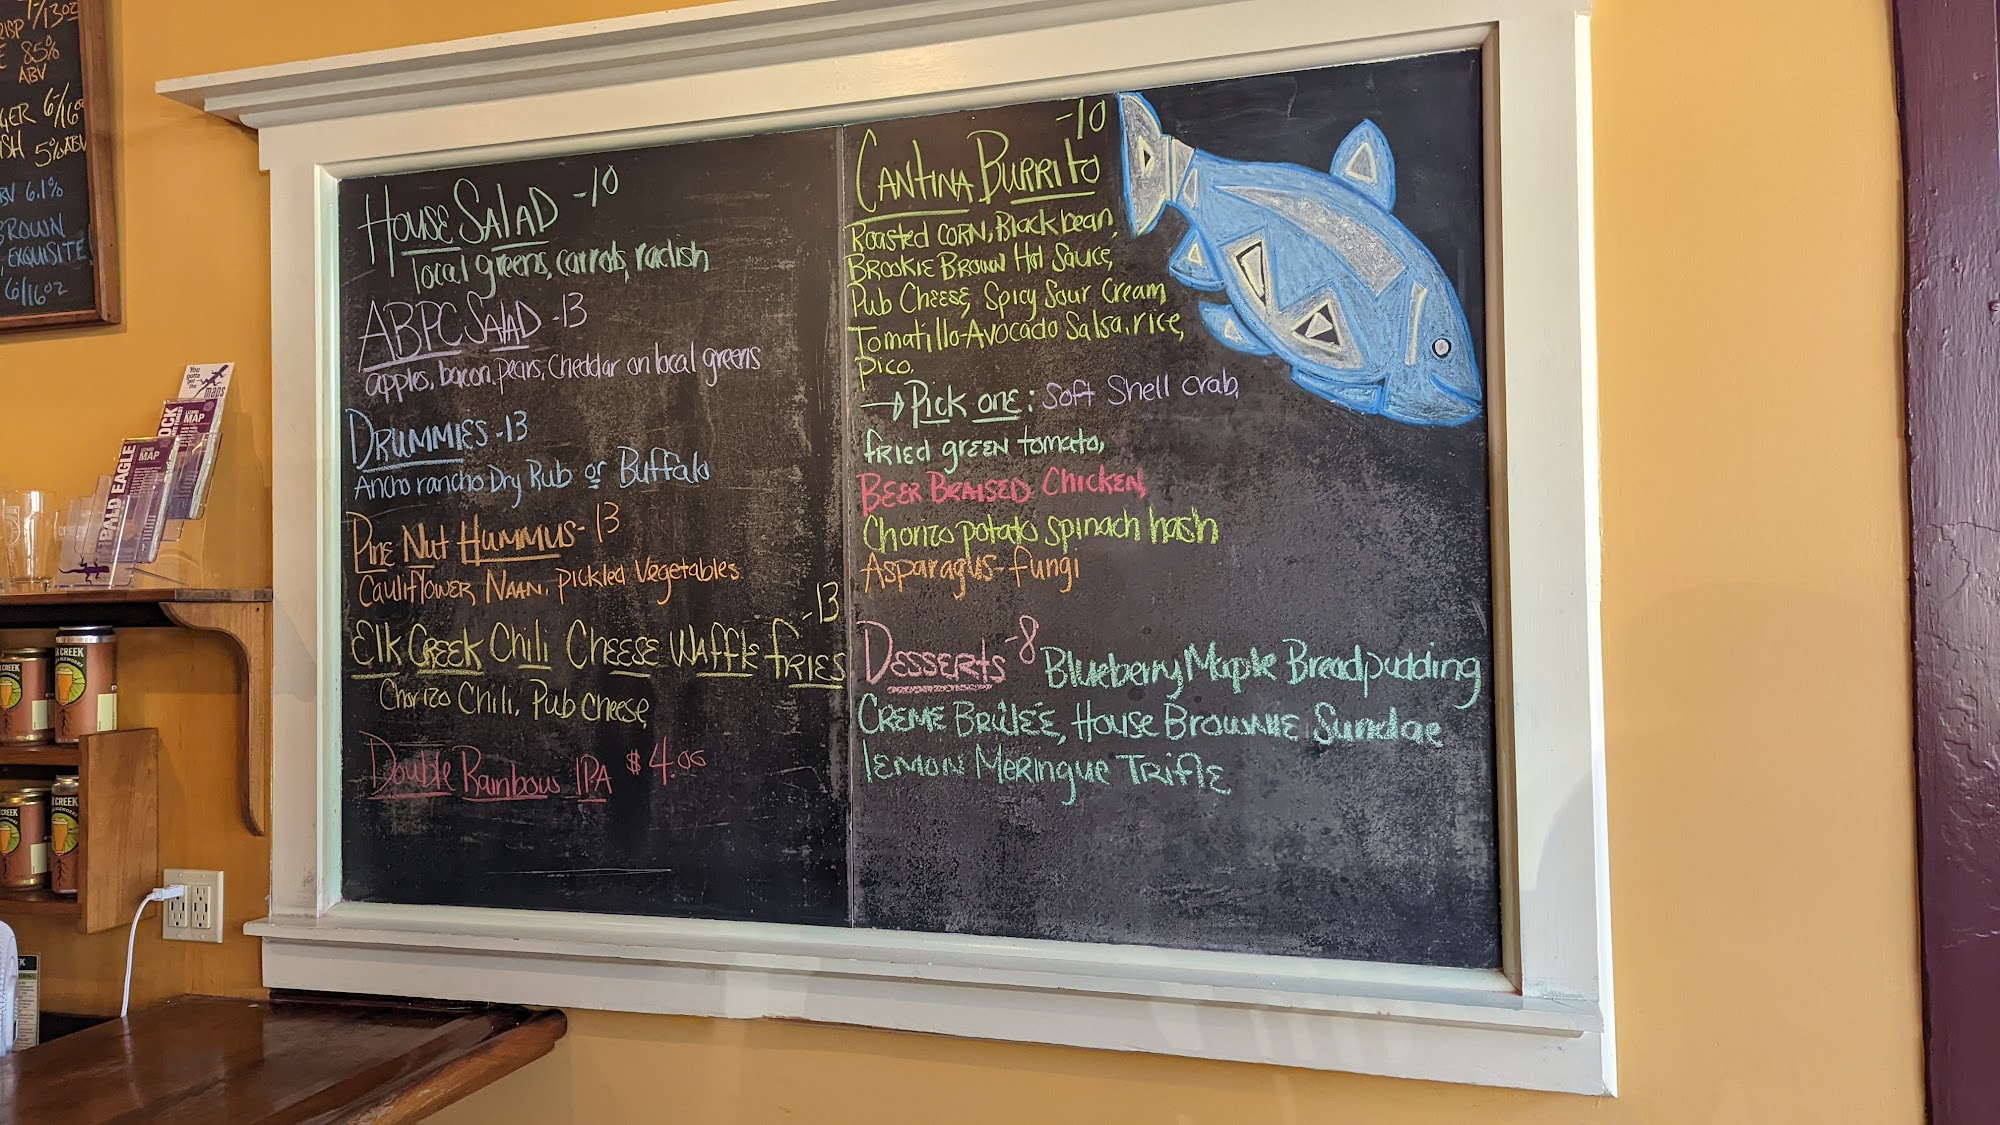 7-/13oz
85%
ABV
6-/16oz
5% ABV
6.1%
BROWN
EXQUISITE!
6/16oz
House Salad -10
local greens, carrots, radish
ABPC Salad -13
apples, bacon, pears, cheddar on local greens
Drummies -13
Ancho rancho Dry Rub or Buffalo
Pine Nut Hummus - 13
Cauliflower Naan, pickled vegetables
Elk Creek Chili Cheese Waffle fries -13
Chorizo Chili, Pub Cheese,
Double Rainbows IPA $4.00
Cantina Burrito -10
Roasted corn, Black bean,
Brookie Brown Hot Sauce,
Pub Cheese, Spicy Sour Cream,
Tomatillo-Avocado Salsa, rice,
pico,
→ Pick one: Soft Shell Crab,
fried green tomato,
Beer Braised Chicken,
Chorizo potato spinach hash
Asparagus-fungi
Desserts -8 Blueberry Maple Breadpudding
Creme Brûlée, House Brownie Sundae
lemon Meringue Trifle
You
gotta
get the
maps
LIZARD
MAP
LIZARD
MAP
BALD EAGLE
CREEK
CREEK
CREEK
CREEK